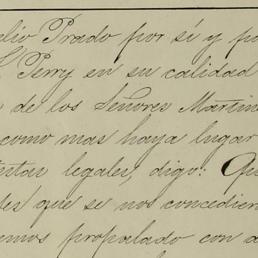 elio Prado por sí y po
Perry en su calidad
de los Señores Martin
como mas haya lugar
estas legales, digo: Qu
es que se nos concedien
emos propalado con